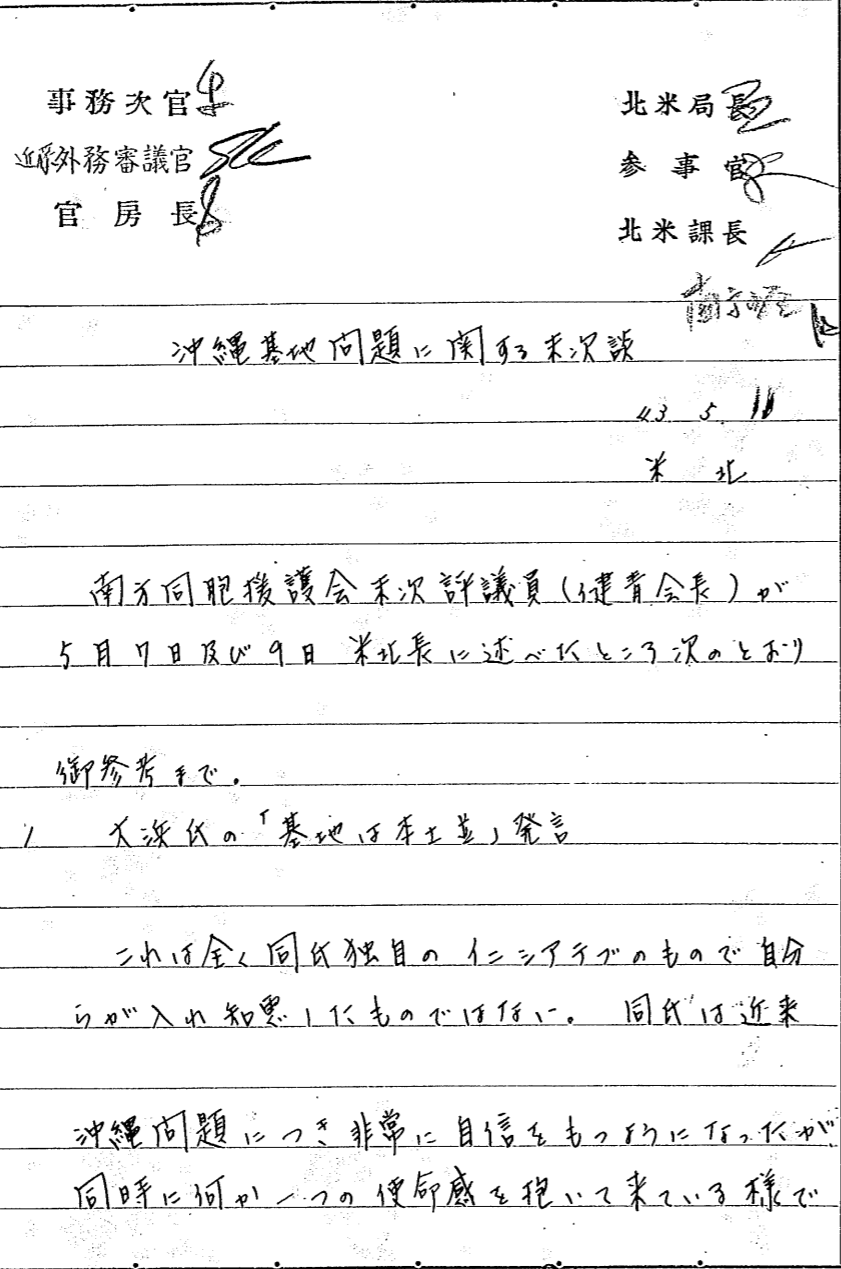 事務次官
外務審議官
官房長
北米局長
参事官
北米課長
沖縄基地問題に関する末次談
43 5. 11
米北
南方同胞援護会末次評議員(健青会長)が
5月7日及び9日 米北長に述べたところ次のとおり
御参考まで。
1 大浜氏の「基地は本土並」発言
これは全く同氏独自のイニシアティブのもので自分
らが入れ知恵したものではない。 同氏は近来
沖縄問題につき非常に自信をもつようになったが
同時に何か一つの使命感を抱いて来ている様で